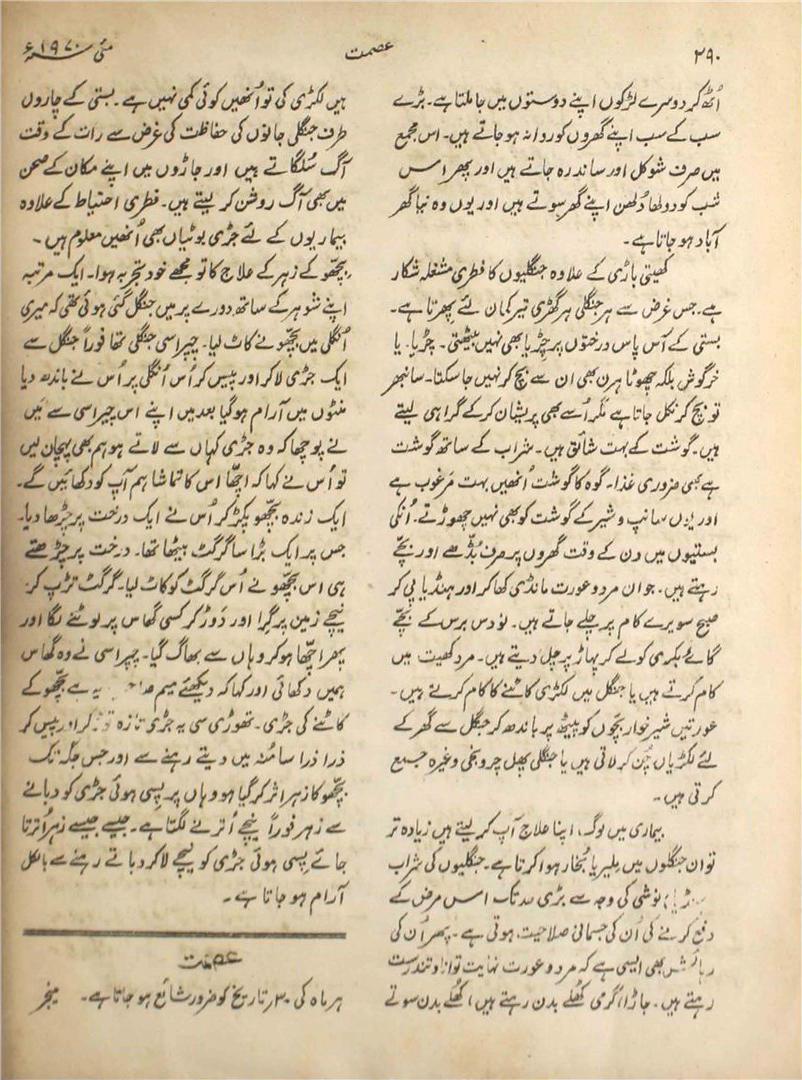 ۲۹۰
عصمت
مئی ۱۹۷۰ء
اُٹھ کر دوسرے لڑکوں اپنے دوستوں میں جا ملتا ہے۔ بڑے
سب کے سب اپنے گھروں کو روانہ ہو جاتے ہیں۔ اس مجمع
میں صرف شوکل اور ساندرہ جاتے ہیں اور پھر اس
شب کو دولھا دُلھن اپنے گھر سوتے ہیں اور یوں وہ نیا گھر
آباد ہو جاتا ہے۔
کھیتی باڑی کے علاوہ جنگلیوں کا فطری مشغلہ شکار
ہے۔ جس غرض سے ہر جنگلی ہر گھڑی تیر کمان لئے پھرتا ہے۔
بستی کے آس پاس درختوں پر چڑیا بھی نہیں بیٹھتی۔ چڑیا۔ یا
خرگوش بلکہ چھوٹا ہرن بھی ان سے بچ کر نہیں جا سکتا۔ سانبھر
تو بچ کر نکل جاتا ہے مگر اُسے بھی پریشان کر کے گرا ہی لیتے
ہیں۔ گوشت کے بہت شائق ہیں۔ شراب کے ساتھ گوشت
ہے بھی ضروری غذا۔ گوہ کا گوشت اُنھیں بہت مرغوب ہے
اور یوں سانپ و شیر کے گوشت کو بھی نہیں چھوڑتے۔ اُنکی
بستیوں میں دن کے وقت گھروں پر صرف بُڈّھے اور بچّے
رہتے ہیں۔ جوان مرد و عورت مانڈی کھا کر اور ہنڈیا پی کر
صبح سویرے کام پر چلے جاتے ہیں۔ نو دس برس کے بچّے
گائے بکری کو لے کر پہاڑ پر چل دیتے ہیں۔ مرد کھیت میں
کام کرتے ہیں یا جنگل میں لکڑی کاٹنے کا کام کرتے ہیں۔
عورتیں شیر خوار بچّوں کو پیٹھ پر باندھ کر جنگل سے گھر کے
لئے لکڑیاں چُن کر لاتی ہیں یا جنگلی پھل چرونجی وغیرہ جمع
کرتی ہیں۔
بیماری میں لوگ، اپنا علاج آپ کر لیتے ہیں زیادہ تر
تو ان جنگلوں میں ملیریا بُخار ہوا کرتا ہے۔ جنگلیوں کی شراب
نوشی کی وجہ سے بڑی حد تک اس مرض کے
دفع کرنے کی اُن کی جسمانی صلاحیت ہوتی ہے۔ پھر اُن کی
رہائش بھی ایسی ہے کہ مرد و عورت نہایت توانا و تندرست
رہتے ہیں۔ جاڑا، گرمی کُھلے بدن رہتے ہیں، کُھلے بدن سوتے
ہیں لکڑی کی تو اُنھیں کوئی کمی نہیں ہے۔ بستی کے چاروں
طرف جنگلی جانوں کی حفاظت کی غرض سے رات کے وقت
آگ سُلگاتے ہیں اور جاڑوں میں اپنے مکان کے صحن
میں بھی آگ روشن کر لیتے ہیں۔ فطری احتیاط کے علاوہ
بیماریوں کے لئے جڑی بوٹیاں بھی اُنھیں معلوم ہیں۔
بچھّو کے زہر کے علاج کا تو مجھے خود تجربہ ہوا۔ ایک مرتبہ
اپنے شوہر کے ساتھ دورے پر میں جنگل گئی ہوئی تھی کہ میری
اُنگلی میں بچھّو نے کاٹ لیا۔ چپراسی جنگلی تھا فوراً جنگل سے
ایک جڑی لاکر اور پیس کر اُس اُنگلی پر اُس نے باندھ دیا
منٹوں میں آرام ہو گیا بعد میں اپنے اس چپراسی سے میں
نے پوچھا کہ وہ جڑی کہاں سے لاتے ہو ہم بھی پہچان لیں
تو اُس نے کہا کہ اچھّا اس کا تماشا ہم آپ کو دکھائیں گے۔
ایک زندہ بچھّو پکڑ کر اُس نے ایک درخت پر چڑھا دیا۔
جس پر ایک بڑا سا گرگٹ بیٹھا تھا۔ درخت پر چڑھتے
ہی اس بچھّو نے اُس گرگٹ کو کاٹ لیا۔ گرگٹ تڑپ کر
نیچے زمین پر گِرا اور دَوڑ کر کسی گھاس پر لوٹنے لگا اور
پھر اچھّا ہو کر وہاں سے بھاگ گیا۔ چپراسی نے وہ گھاس
ہمیں دکھائی اور کہا کہ دیکھئے میم صاحب یہ ہے بچھّو کے
کاٹنے کی جڑی۔ تھوڑی سی یہ جڑی تازہ توڑ کر اور پیس کر
ذرا ذرا سا مُنہ میں دیتے رہنے سے اور جس جگہ تک
بچھّو کا زہر اثر کر گیا ہو وہاں پر پسی ہوئی جڑی کو دبانے
سے زہر فوراً نیچے اُترنے لگتا ہے۔ جیسے جیسے زہر اُترتا
جائے پسی ہوئی جڑی کو نیچے لاکر دباتے رہنے سے بالکل
آرام ہو جاتا ہے۔
عصمت
ہر ماہ کی ۳۰ تاریخ کو ضرور شائع ہو جاتا ہے۔ منیجر